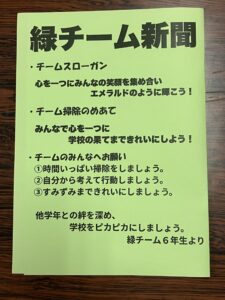 緑チーム新聞
・チームスローガン
心を一つにみんなの笑顔を集め合い
エメラルドのように輝こう！
・チーム掃除のめあて
みんなで心を一つに
学校の果てまできれいにしよう！
・チームのみんなへお願い
①時間いっぱい掃除をしましょう。
②自分から考えて行動しましょう。
③すみずみまできれいにしましょう。
他学年との絆を深め、
学校をピカピカにしましょう。
緑チーム６年生より